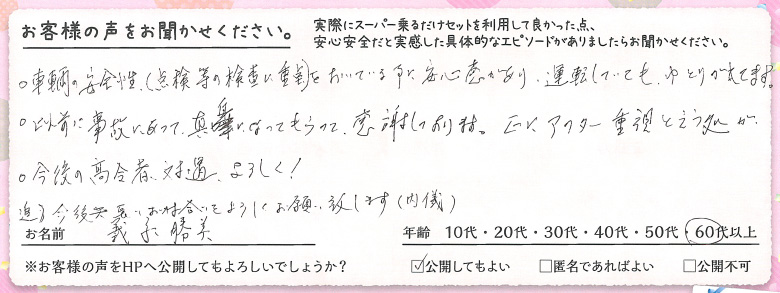 お客様の声をお聞かせください。
実際にスーパー乗るだけセットを利用して良かった点、
安心安全だと実感した具体的なエピソードがありましたらお聞かせください。
○車輌の安全性、(点検等の検査に重きをおいている事に安心感があり、運転していても、ゆとりがもてます。
○以前に事故にあって、真摯になってもらって、感謝しております。正に、アフター重視と言う処が、
○今後の高令者、対遇、よろしく!
今後共 お付合い ように お願い致します(内儀)
お名前 勝美
年齢 10代・20代・30代・40代・50代・60代以上
※お客様の声をHPへ公開してもよろしいでしょうか?
☑公開してもよい □匿名であればよい □公開不可